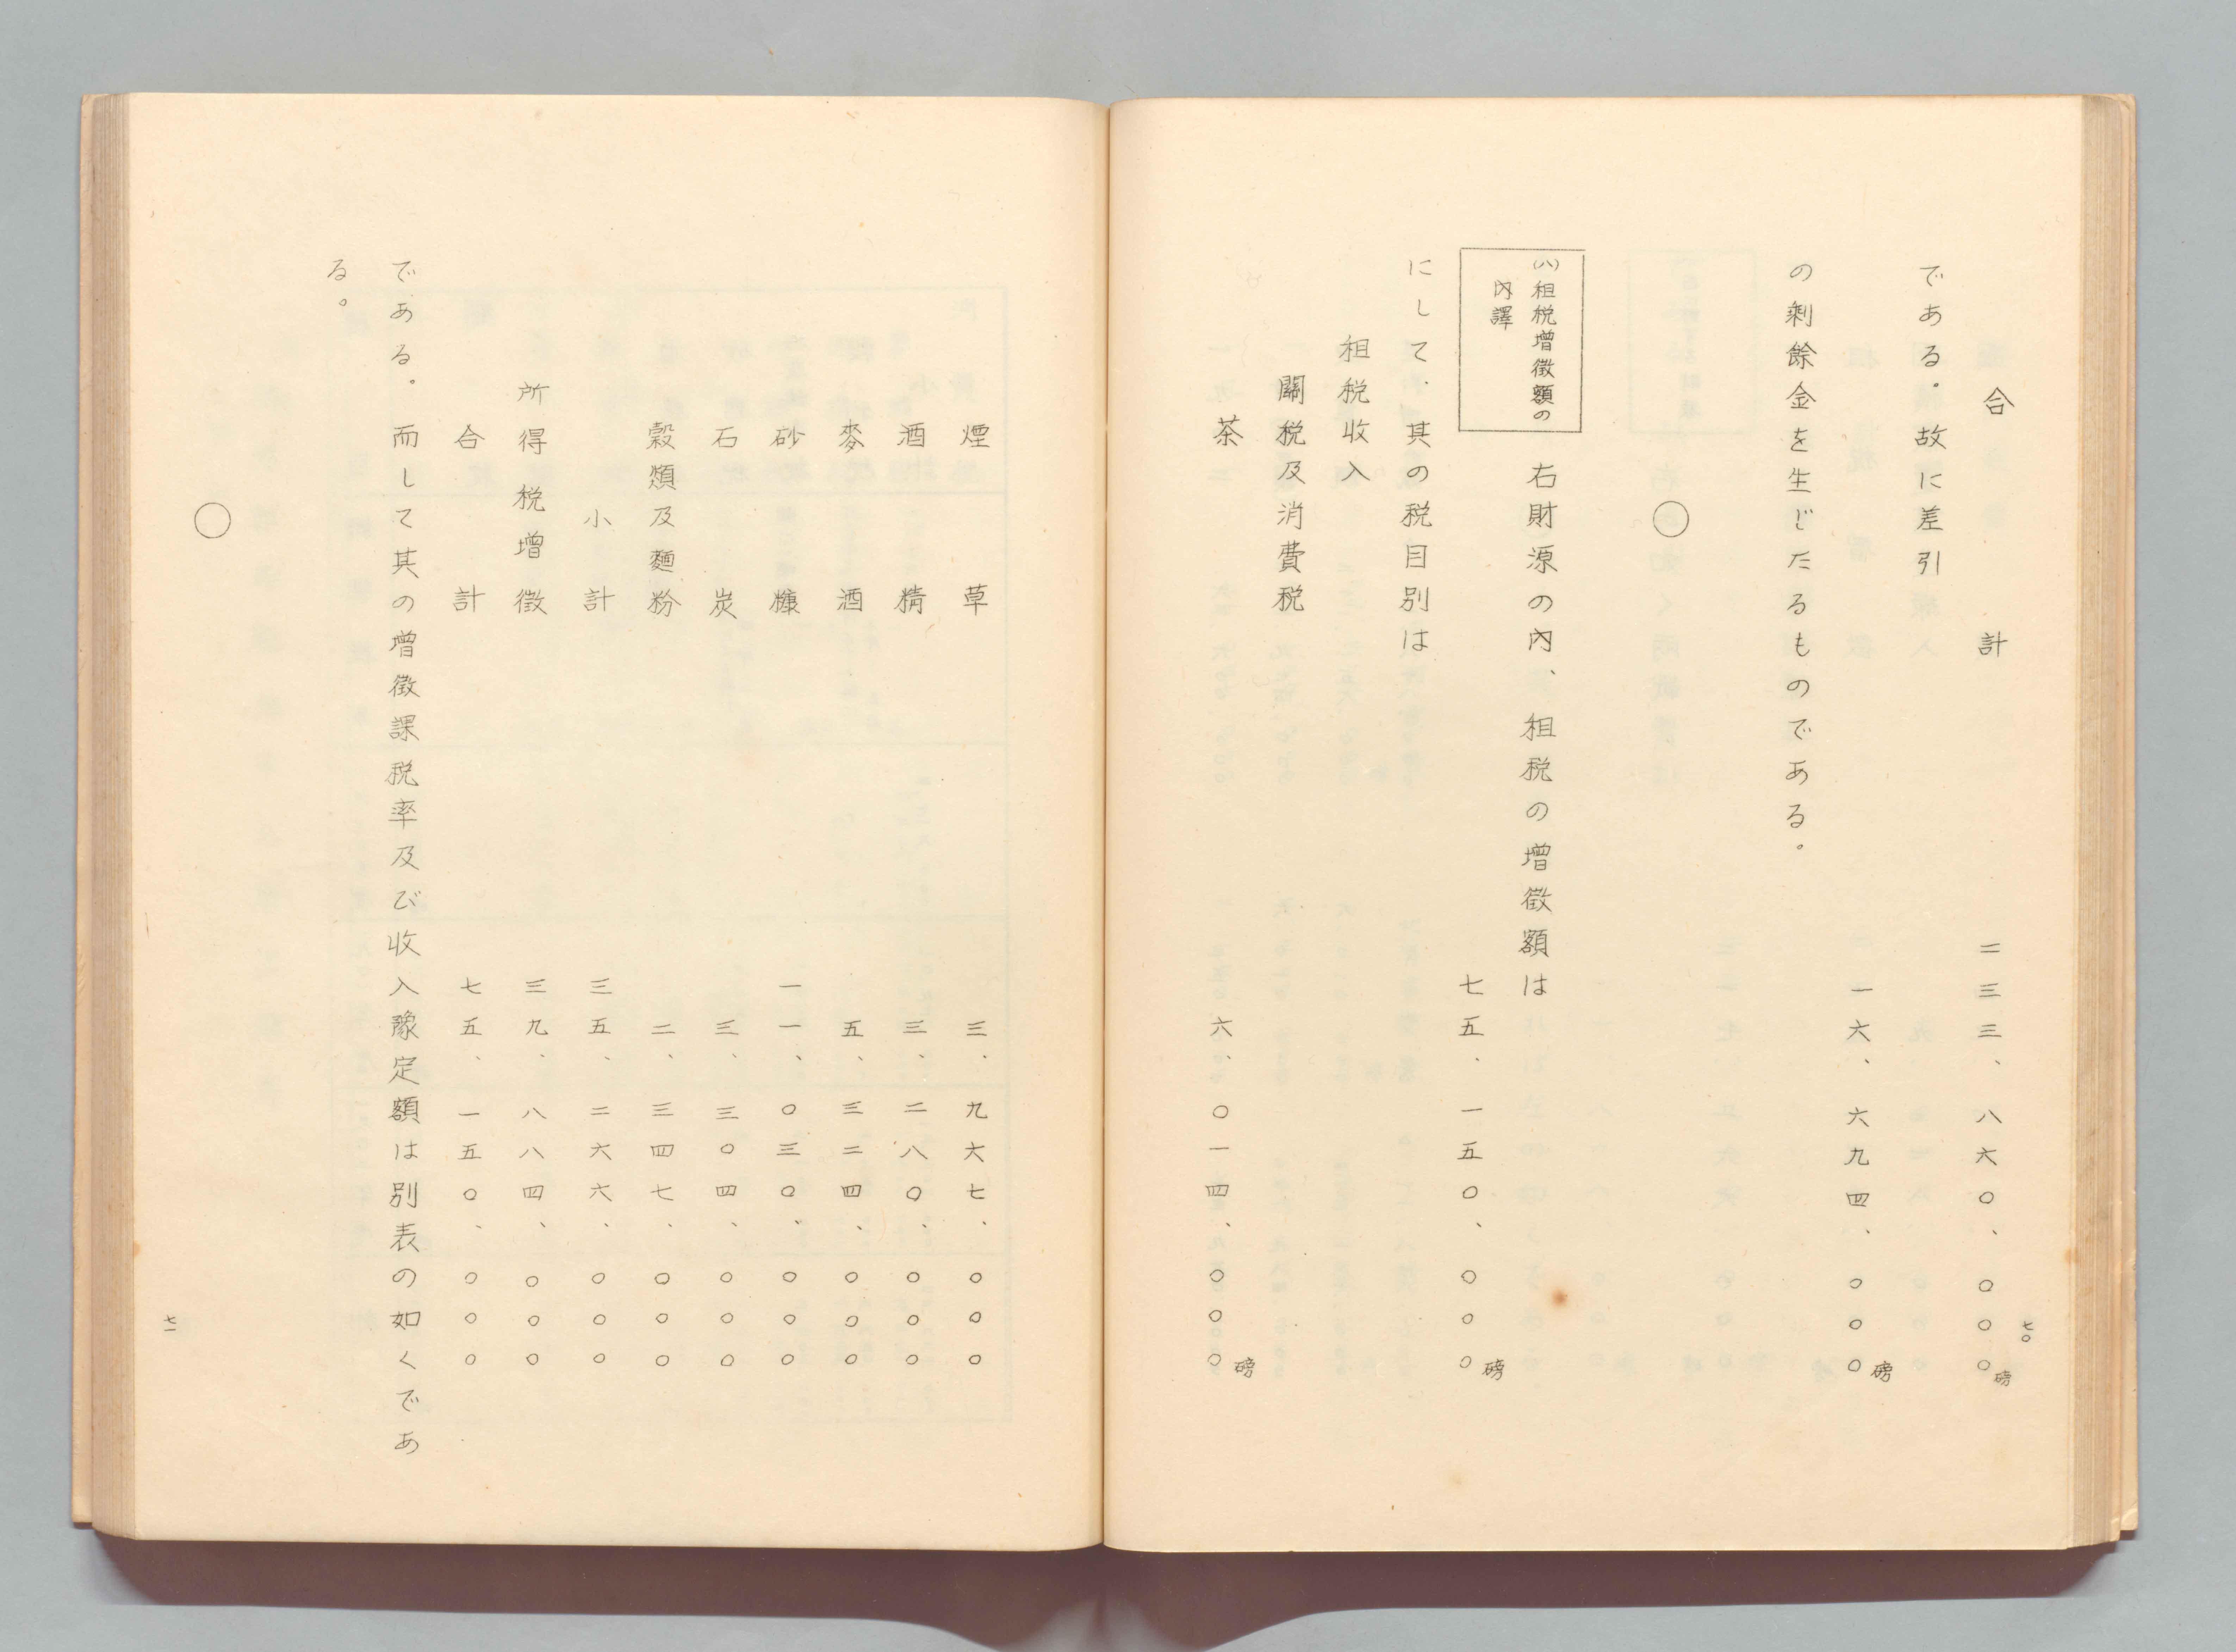 七〇
合計 二三三、八六〇、〇〇〇磅
である。故に差引
一六、六九四、〇〇〇磅
の剰餘金を生じたるものである。
〇
(八)租税增徴額の
內譯
右財源の內、租税の增徴額は
七五、一五〇、〇〇〇磅
にして、其の税目別は
租税收入
關税及消費税
茶 六、〇一四、〇〇〇磅
煙草 三、九六七、〇〇〇
酒精 三、二八〇、〇〇〇
麥酒 五、三二四、〇〇〇
砂糠 一一、〇三〇、〇〇〇
石炭 三、三〇四、〇〇〇
穀類及麵粉 二、三四七、〇〇〇
小計 三五、二六六、〇〇〇
所得税增徴 三九、八八四、〇〇〇
合計 七五、一五〇、〇〇〇
である。而して其の增徴課税率及び收入豫定額は別表の如くであ
る。
〇
七一